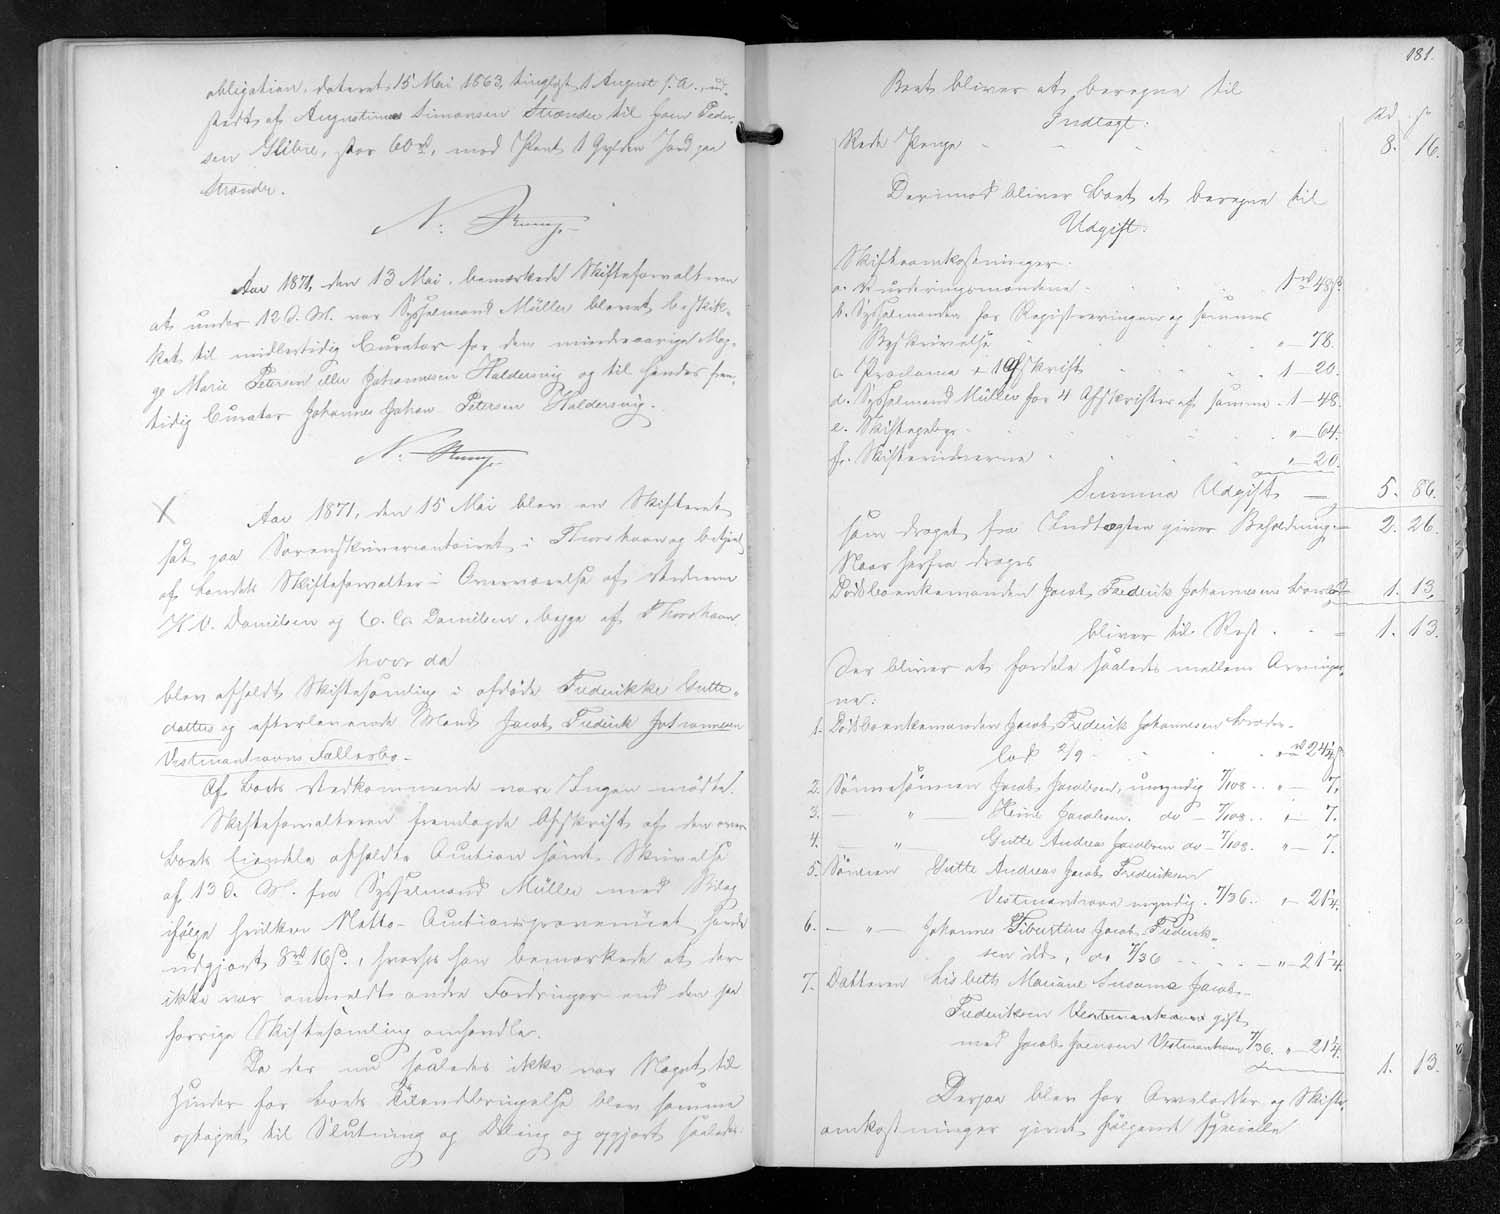 obligation, dateret 15 Mai 1863, tinglyst 1 August s. A., ud-
stedt af Augustinus Simonsen Strænder til Joen Peder-
sen Glibre, stor 60 rd, mod Pant 1 Gylden Jord paa
Strænder.
N:
Aar 1871, den 13 Mai, bemærkede Skifteforvalteren
at under 12 d. M. var Sysselmand Müller blevet beskik-
ket til midlertidig Curator for den mindreaarige Mag-
ge Marie Petersen eller Johannesen Haldersvig og til hendes frem-
tidig Curator Johannes Johan Petersen Haldersvig.
N:
X Aar 1871, den 15 Mai blev en Skifteret
sat paa Sorenskrivercontoiret i Thorshavn og betjent
af Landets Skifteforvalter i Overværelse af Vidnerne
H. O. Danielsen og C. C. Danielsen, begge af Thorshavn,
hvor da
blev afholdt Skiftesamling i afdøde Frederikke Gutte-
datters og efterlevende Mand Jacob Frederik Johannesen
Vestmanhavns Fællesbo.
Af Boets Vedkommende vare Ingen mødte.
Skifteforvalteren fremlagde Afskrift af den over
Boets Eiendele afholdte Auction samt Skrivelse
af 13 d. M. fra Sysselmand Müller med Bilag
ifølge hvilken Netto-Auctionsprovenuet havde
udgjort 8 rd 16 s., hvorhos han bemærkede at der
ikke var anmeldt andre Fordringer end den paa
forrige Skiftesamling omhandlede.
Da der nu saaledes ikke var Noget til
Hinder for Boets Tilendebringelse blev samme
optaget til Slutning og Deling og opgjort saaledes:
181.
Boet bliver at beregne til
Indtægt:
Rd. s.
Rede Penge 8. 16.
Derimod bliver Boet at beregne til
Udgift:
Skifteomkostninger.
a. Vurderingsmændene 1 rd 48 s.
b. Sysselmanden for Registreringen og sammes
Beskrivelse " – 78.
c. Proclama + 1 Afskrift 1 – 20.
d. Sysselmand Müller for 4 Afskrifter af samme 1 – 48.
e. Skiftegebyr " – 64.
f. Skiftevidnerne " – 20.
Summa Udgift 5. 86.
som draget fra Indtægten giver Beholdning 2. 26.
Naar herfra drages
Dødsboenkemanden Jacob Frederik Johannesens Boeslod 1. 13.
bliver til Rest 1. 13.
der bliver at fordele saaledes mellem Arvinger-
ne:
1. Dødsboenkemanden Jacob Frederik Johannesen Broder-
lod 2/9 " rd 24 1/4 s
2. Sønnesønnen Jacob Jacobsen, umyndig 7/108 " – 7.
3. — " — Heine Jacobsen do – 7/108 " – 7.
4. — " — Gutte Andreas Jacobsen do – 7/108. " – 7.
5. Sønnen Gutte Andreas Jacob Frederiksen
Vestmanhavn myndig 7/36 " – 21 1/4.
6. — " — Johannes Tiburtius Jacob Frederik-
sen ibd., do 7/36 " – 21 1/4.
7. Datteren Lisbeth Mariane Susanne Jacob-
Frederiksen Vestmanhavn gift
med Jacob Joensen Vestmanhavn 7/36. " – 21 1/4.
1. 13.
Derpaa blev for Arvelodder og Skifte-
omkostninger givet følgende specielle